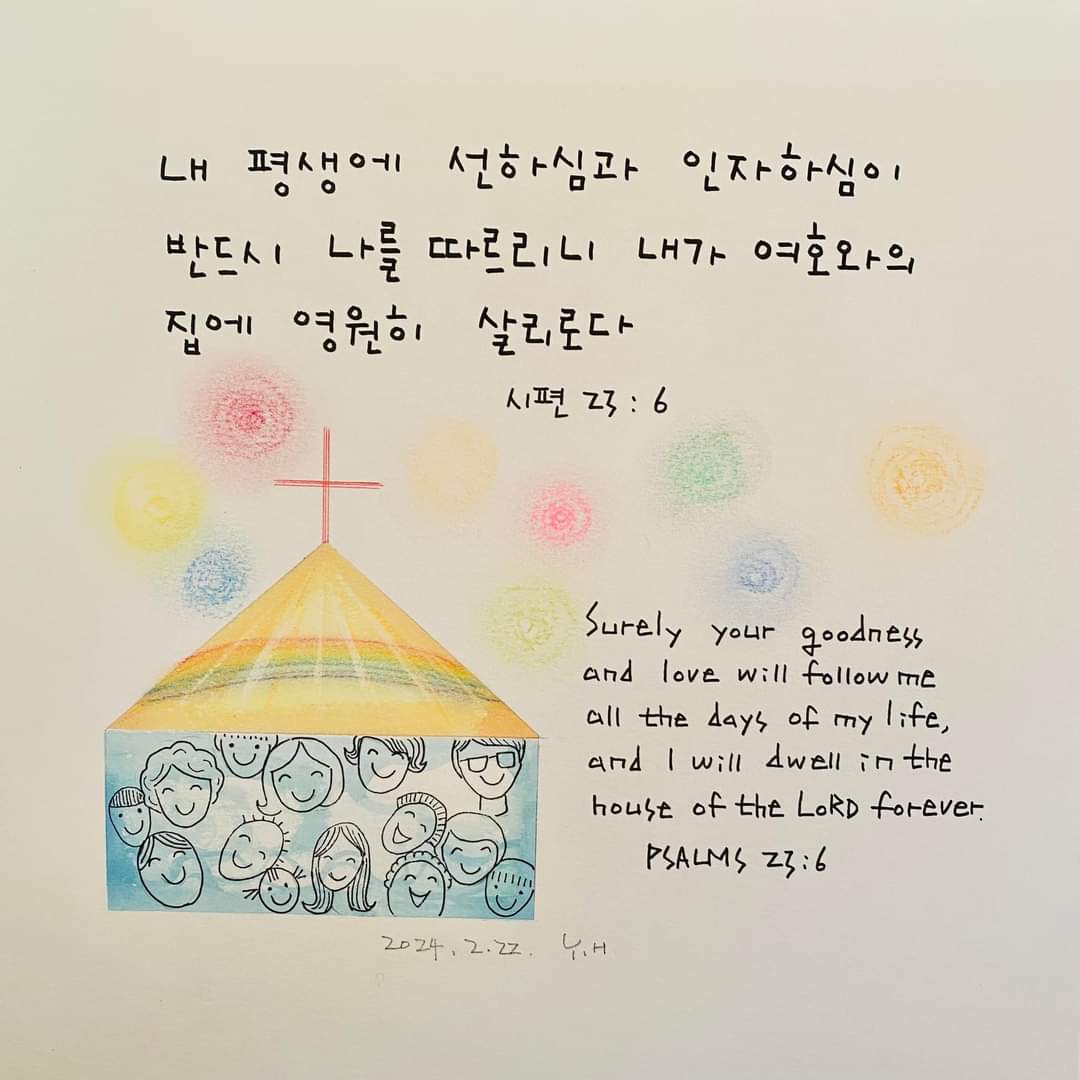 내 평생에 선하심과 인자하심이
반드시 나를 따르리니 내가 여호와의
집에 영원히 살리로다
시편 23:6
Surely your goodness
and love will follow me
all the days of my life,
and I will dwell in the
house of the LORD forever.
PSALMS 23:6
2024.2.22.